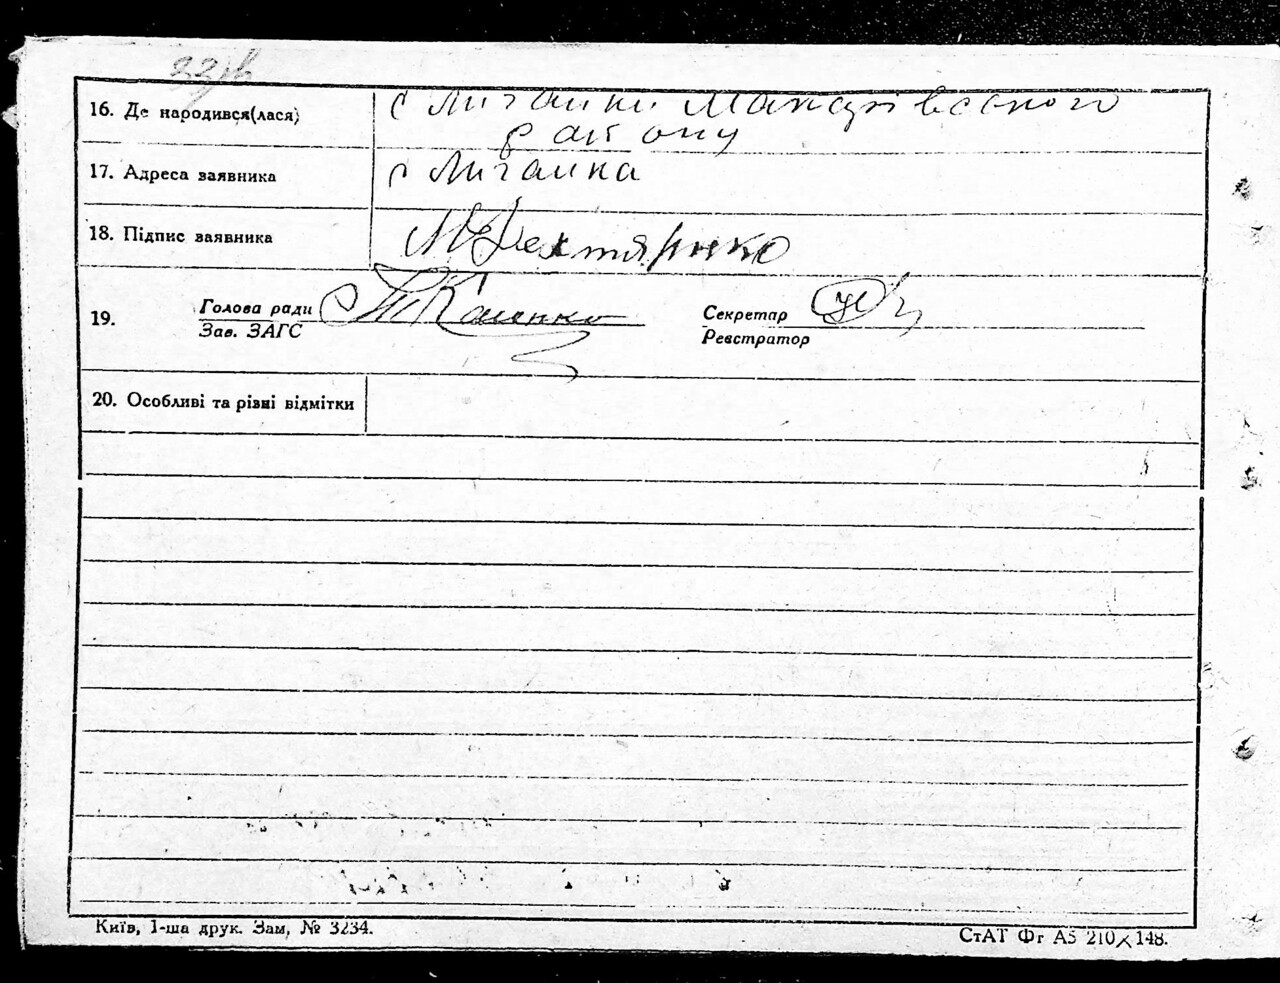 16. Де народився(лася) с Лигалки Маньківського
району
17. Адреса заявника с Лигалка
18. Підпис заявника М Дехтяренко
19. Голова ради
Зав. ЗАГС
Секретар
Реєстратор
20. Особливі та різні відмітки
Київ, 1-ша друк. Зам, № 3234.
СтАТ Фг А5 210×148.